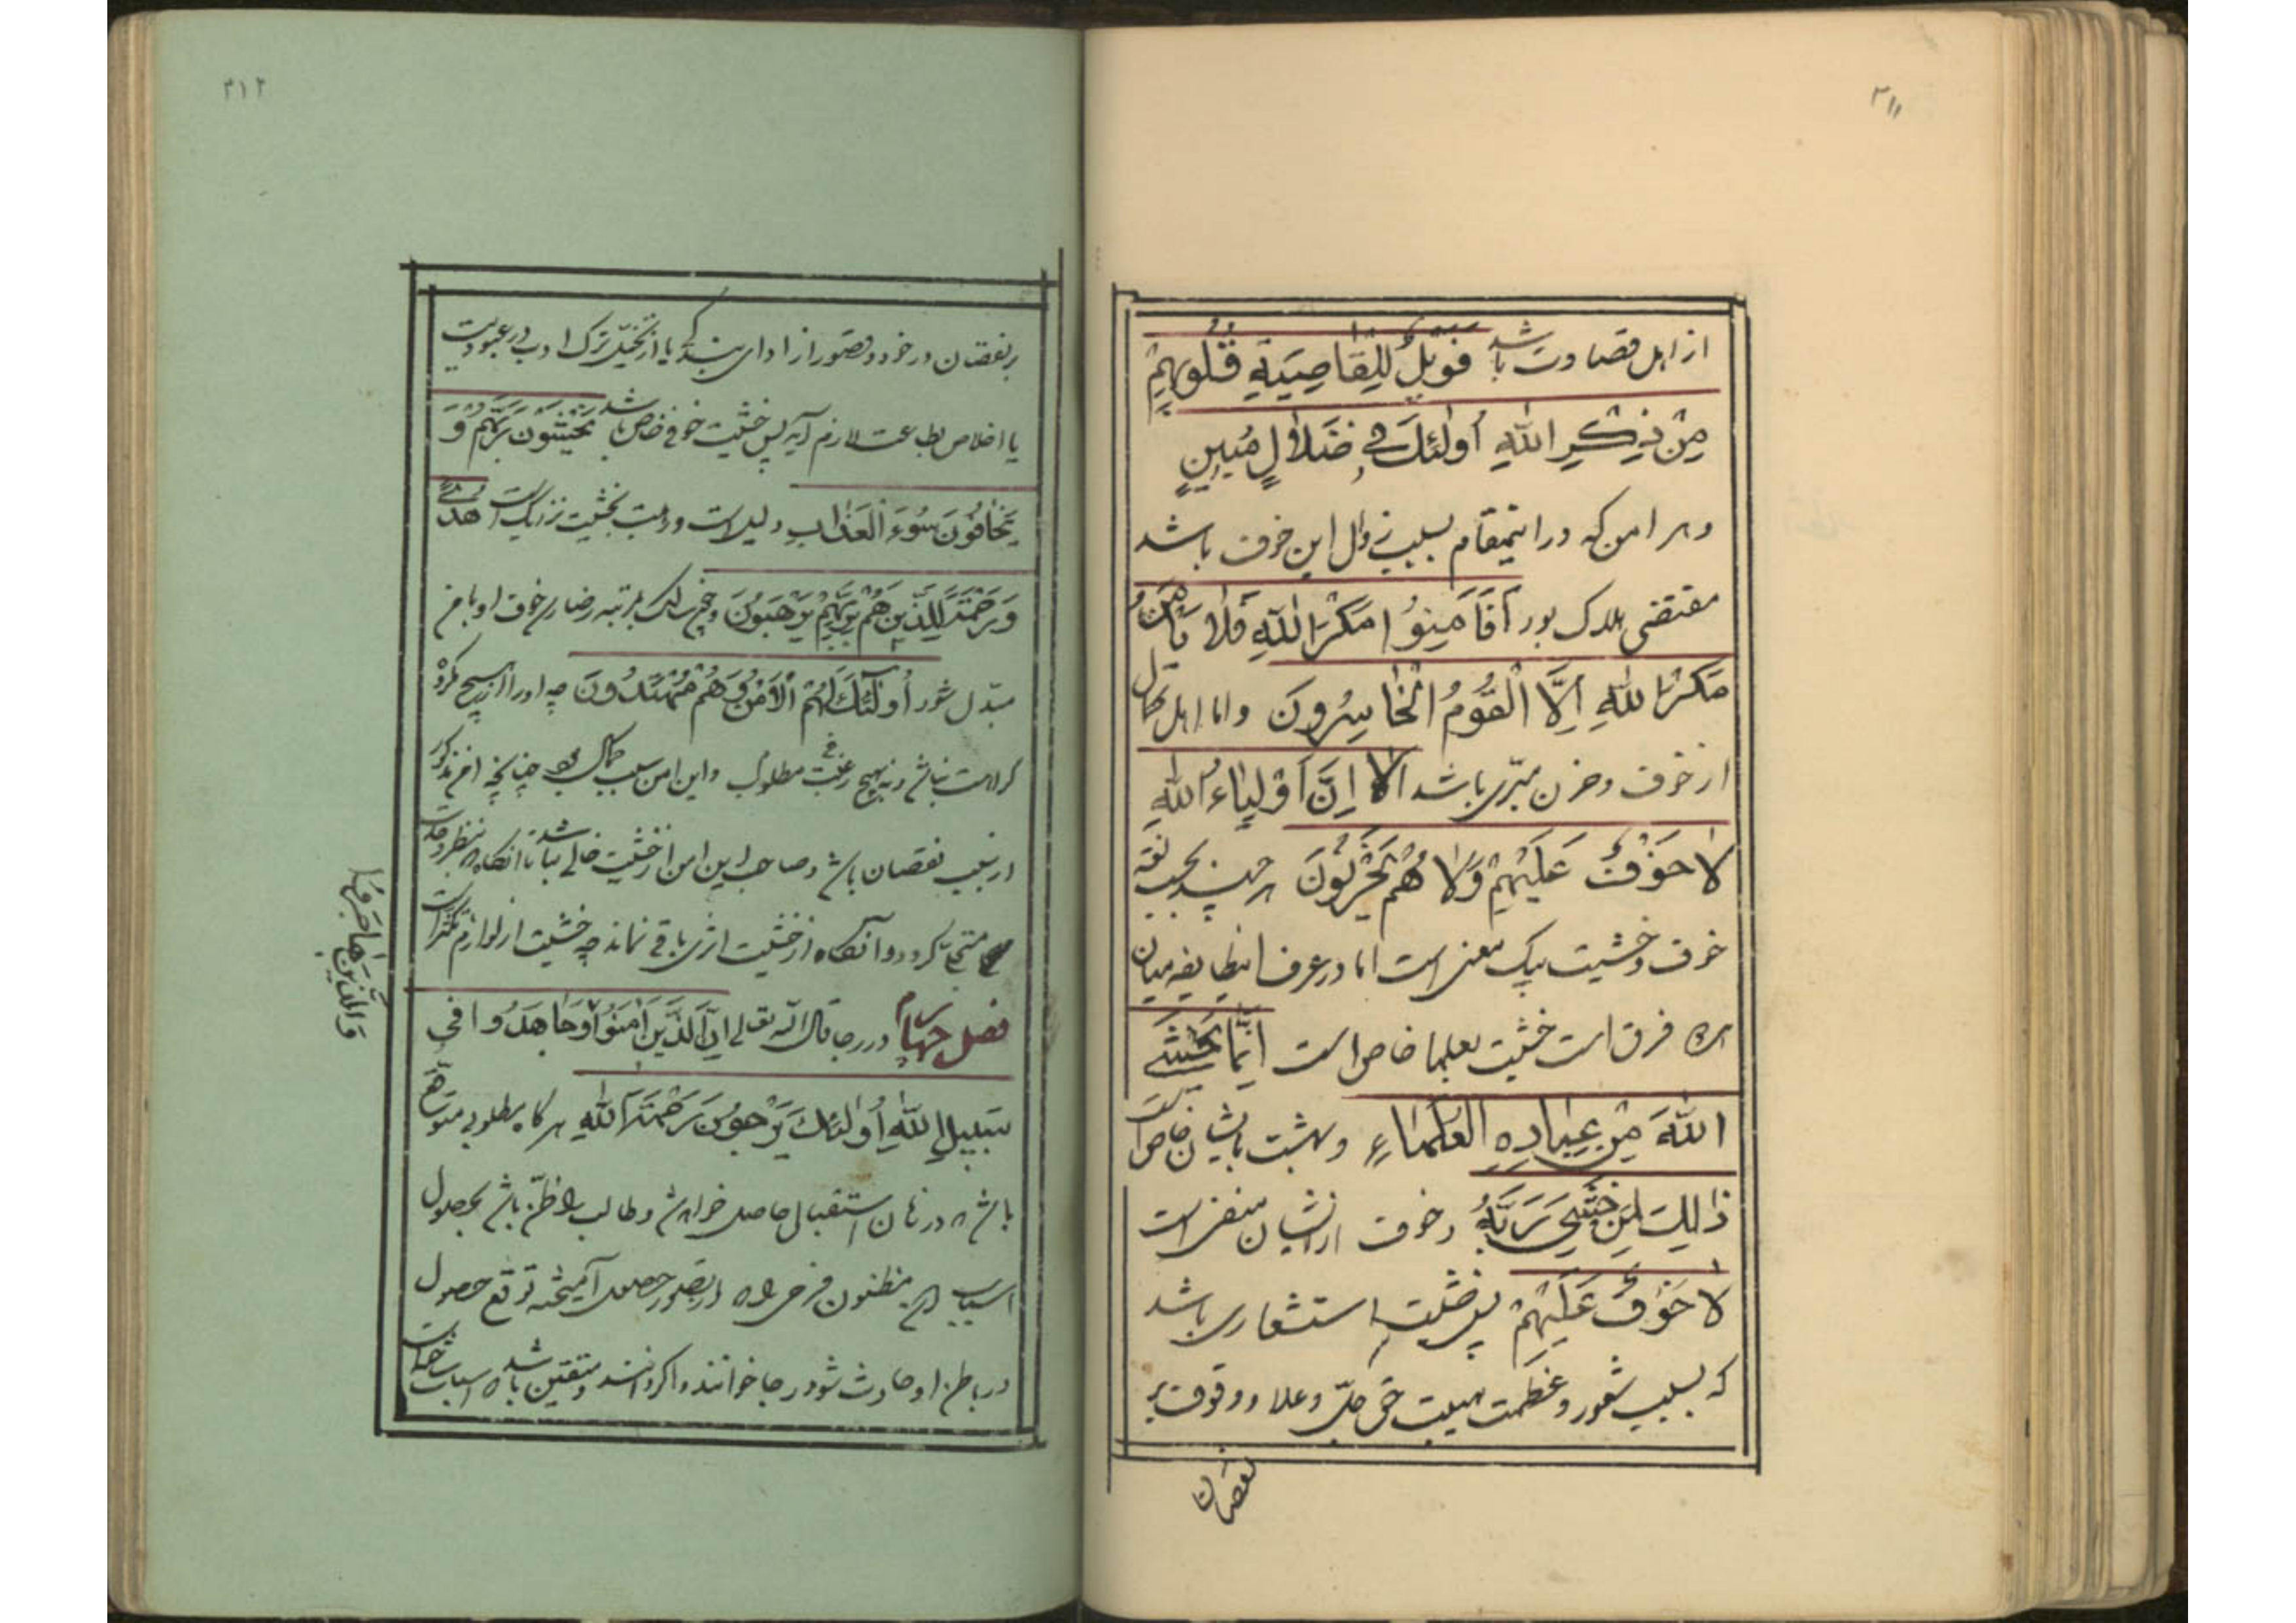 ۳۱۱
از اهل قصاوت باشد فَوَیْلٌ لِلْقَاصِیَةِ قُلُوبُهُمْ
مِنْ ذِکْرِ اللّٰهِ أُولٰئِكَ فِي ضَلَالٍ مُبِينٍ
و هر امن که در اینمقام بسبب زوال این خوف باشد
مقتضی هلاک بود اَفَاَمِنُوا مَکْرَ اللّٰهِ فَلَا یَأْمَنُ
مَکْرَ اللّٰهِ اِلَّا الْقَوْمُ الْخَاسِرُونَ و اما اهل کمال
از خوف و حزن مبرّی باشد اَلَا اِنَّ اَوْلِیَاءَ اللّٰهِ
لَا خَوْفٌ عَلَیْهِمْ وَلَا هُمْ یَحْزَنُونَ هر چند بحسب لغة
خوف و خشیت بیک معنی است اما در عرف اینطایفه میان
فرق است خشیت بعلما خاص است اِنَّمَا یَخْشَی
اللّٰهَ مِنْ عِبَادِهِ الْعُلَمَاءِ و بهشت بایشان خاص است
ذٰلِكَ لِمَنْ خَشِيَ رَبَّهُ و خوف از ایشان منفی است
لَا خَوْفٌ عَلَیْهِمْ پس خشیت استشعاری باشد
که بسبب شعور و عظمت هیبت حق جلّ و علا و وقوف بر
نقصان
۳۱۲
بر نقصان در خود و قصور از ادای بندگی یا از تخیّل ترک ادب در عبودیت
یا اخلاص بطاعت لازم آید پس خشیت خوفی خاص باشد یَخْشَوْنَ رَبَّهُمْ وَ
یَخَافُونَ سُوءَ الْعَذَابِ دلیل است و رهبت بخشیت نزدیک است هُدًی
وَرَحْمَةً لِلَّذِینَ هُمْ لِرَبِّهِمْ یَرْهَبُونَ و چون سالک بمرتبه رضا رسد خوف او بامن
مبدّل شود اُولٰئِكَ لَهُمُ الْاَمْنُ وَهُمْ مُهْتَدُونَ چه او را از هیچ مکروه
کراهت نباشد و نه بهیچ مطلوب رغبتی و این امن بسبب کمال بود چنانچه امن مذکور
از سبب نقصان باشد و صاحب این امن از خشیت خالی نباشد تا آنگاه بنظر وحدت
متجلی گردد و آنگاه از خشیت اثری باقی نماند چه خشیت از لوازم تکثر است
فصل چهارم در رجا قال الله تعالی اِنَّ الَّذِینَ اٰمَنُوا وَجَاهَدُوا فِي
سَبِیلِ اللّٰهِ اُولٰئِكَ یَرْجُونَ رَحْمَةَ اللّٰهِ هر گاه مطلوبی متوقع
باشد که در زمان استقبال حاصل خواهد شد و طالب را ظنّ باشد بحصول
اسباب آن مظنون فرحی در تصور حصول آمیخته توقع حصول
در باطن او حادث شود رجا خوانند و اگر دانند و متیقن باشد اسباب
وَالَّذِینَ هَاجَرُوا